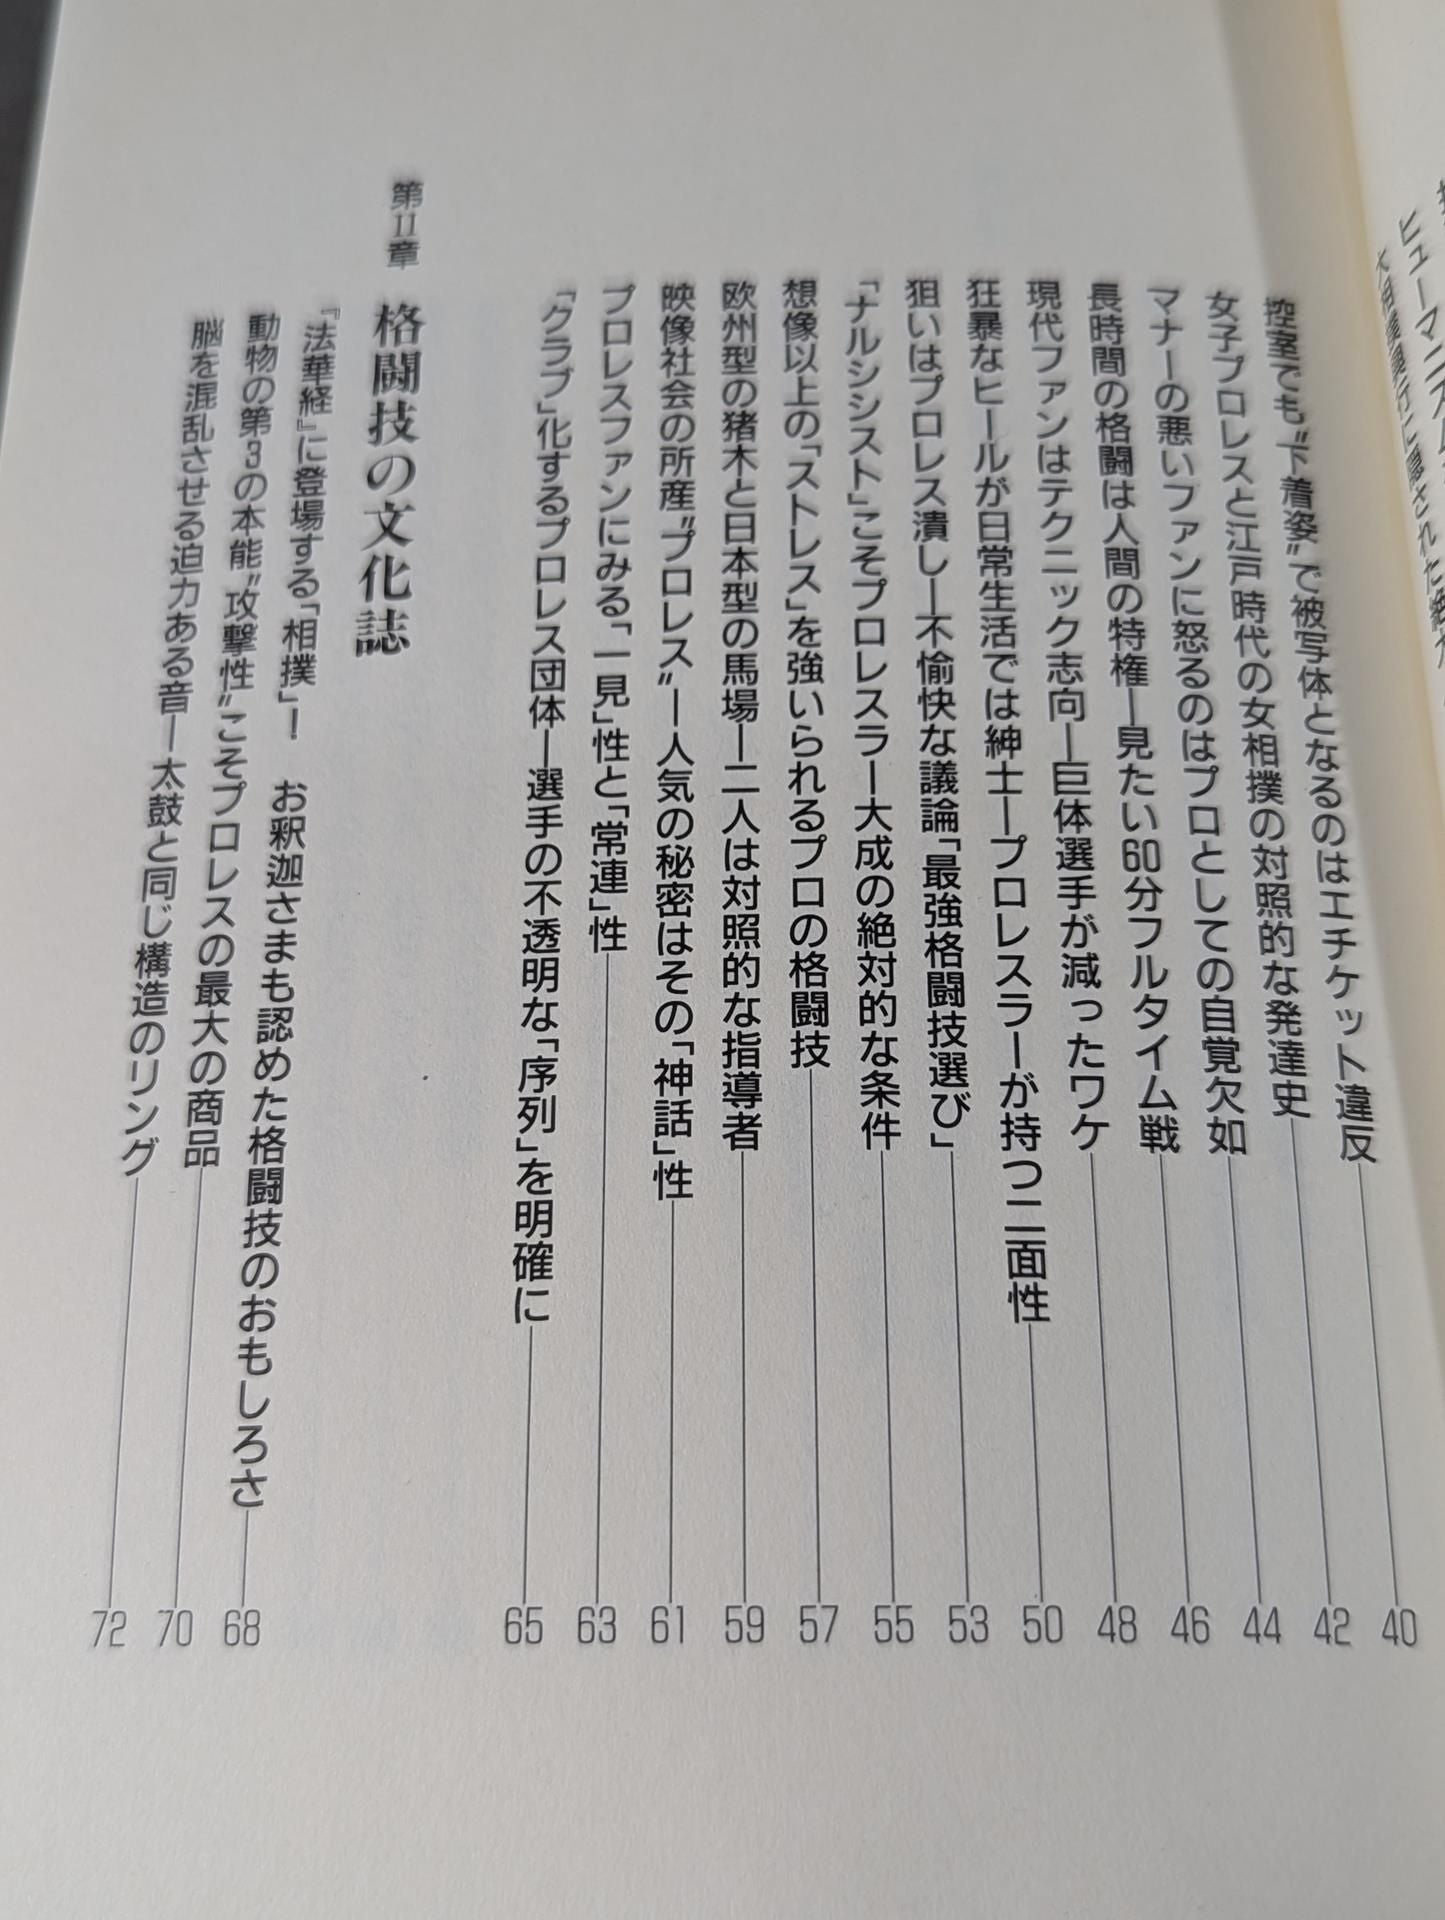 ヒューマニズム
大相撲興行に隠された
控室でも〝下着姿〟で被写体となるのはエチケット違反 40
女子プロレスと江戸時代の女相撲の対照的な発達史 42
マナーの悪いファンに怒るのはプロとしての自覚欠如 44
長時間の格闘は人間の特権―見たい60分フルタイム戦 46
現代ファンはテクニック志向―巨体選手が減ったワケ 48
狂暴なヒールが日常生活では紳士―プロレスラーが持つ二面性 50
狙いはプロレス潰し―不愉快な議論「最強格闘技選び」 53
「ナルシシスト」こそプロレスラー大成の絶対的な条件 55
想像以上の「ストレス」を強いられるプロの格闘技 57
欧州型の猪木と日本型の馬場―二人は対照的な指導者 59
映像社会の所産〝プロレス〟―人気の秘密はその「神話」性 61
プロレスファンにみる「一見」性と「常連」性 63
「クラブ」化するプロレス団体―選手の不透明な「序列」を明確に 65
第II章 格闘技の文化誌
『法華経』に登場する「相撲」― お釈迦さまも認めた格闘技のおもしろさ 68
動物の第3の本能〝攻撃性〟こそプロレスの最大の商品 70
脳を混乱させる迫力ある音―太鼓と同じ構造のリング 72